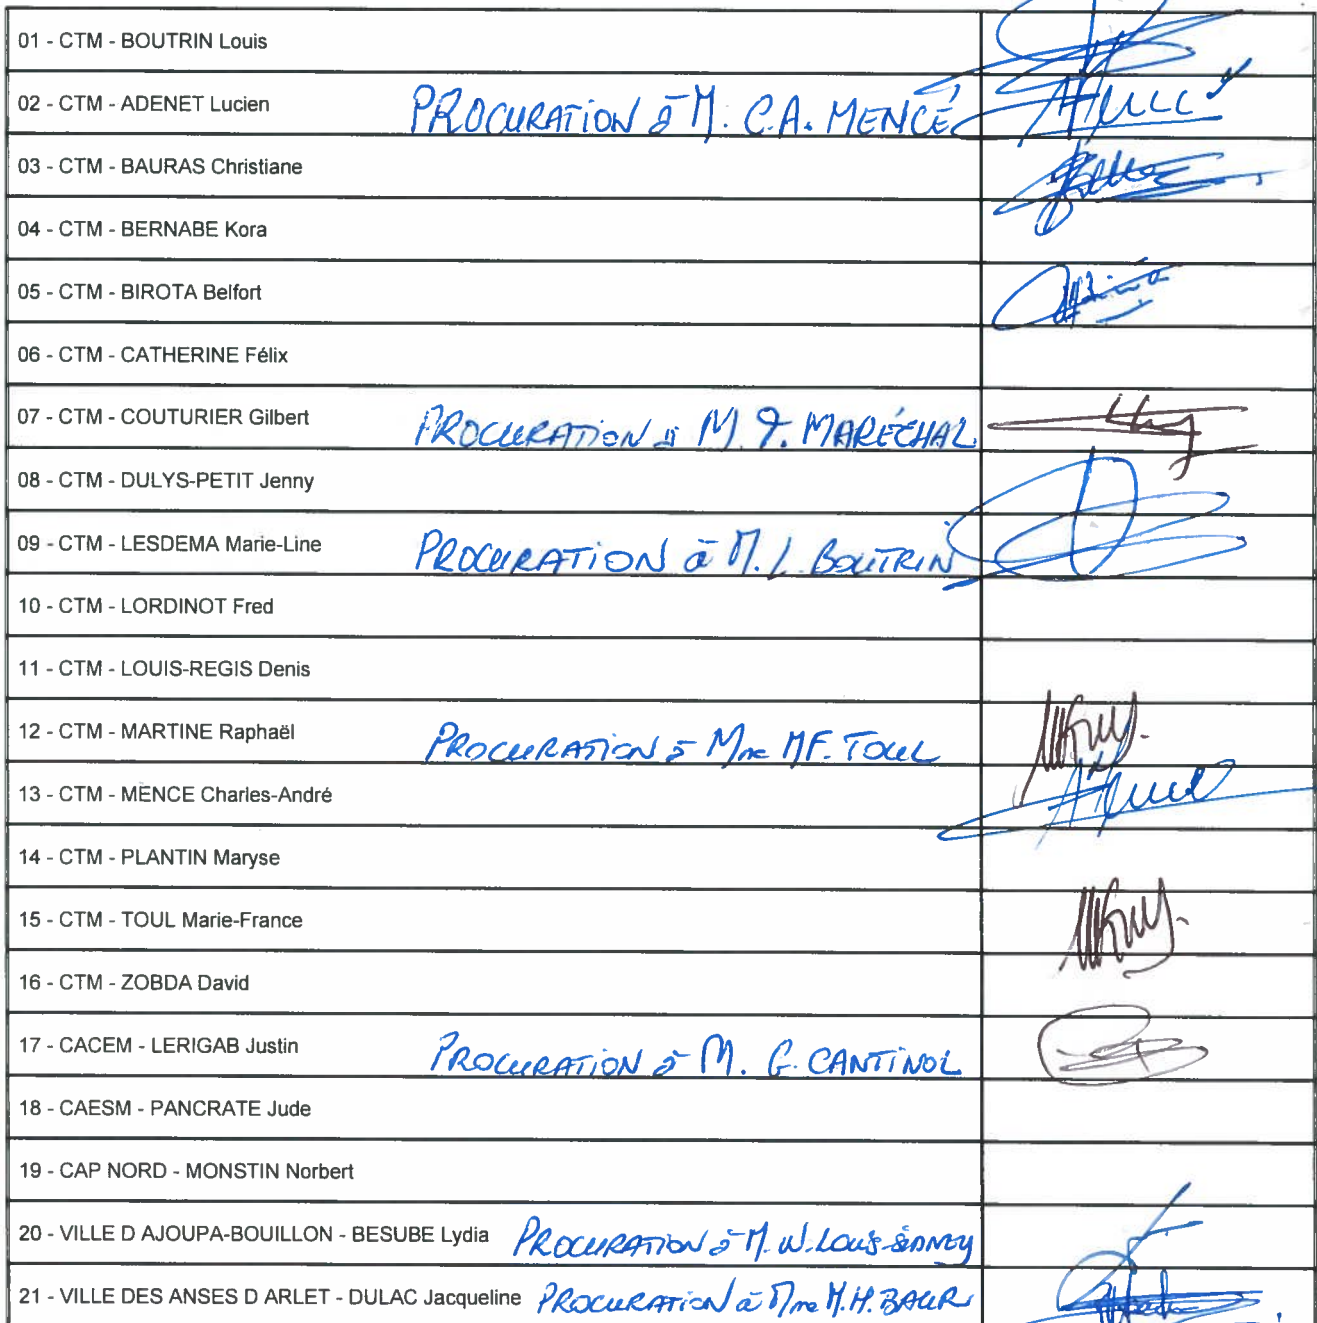 01 - CTM - BOUTRIN Louis
02 - CTM - ADENET Lucien PROCURATION à M. C.A. MENCÉ
03 - CTM - BAURAS Christiane
04 - CTM - BERNABE Kora
05 - CTM - BIROTA Belfort
06 - CTM - CATHERINE Félix
07 - CTM - COUTURIER Gilbert PROCURATION à M. F. MARÉCHAL
08 - CTM - DULYS-PETIT Jenny
09 - CTM - LESDEMA Marie-Line PROCURATION à M. L BOUTRIN
10 - CTM - LORDINOT Fred
11 - CTM - LOUIS-REGIS Denis
12 - CTM - MARTINE Raphaël PROCURATION à Mme MF. TOUL
13 - CTM - MENCE Charles-André
14 - CTM - PLANTIN Maryse
15 - CTM - TOUL Marie-France
16 - CTM - ZOBDA David
17 - CACEM - LERIGAB Justin PROCURATION à M. G. CANTINOL
18 - CAESM - PANCRATE Jude
19 - CAP NORD - MONSTIN Norbert
20 - VILLE D AJOUPA-BOUILLON - BESUBE Lydia PROCURATION à M. W. LOUIS-SIDNEY
21 - VILLE DES ANSES D ARLET - DULAC Jacqueline PROCURATION à Mme M.H. BAUR